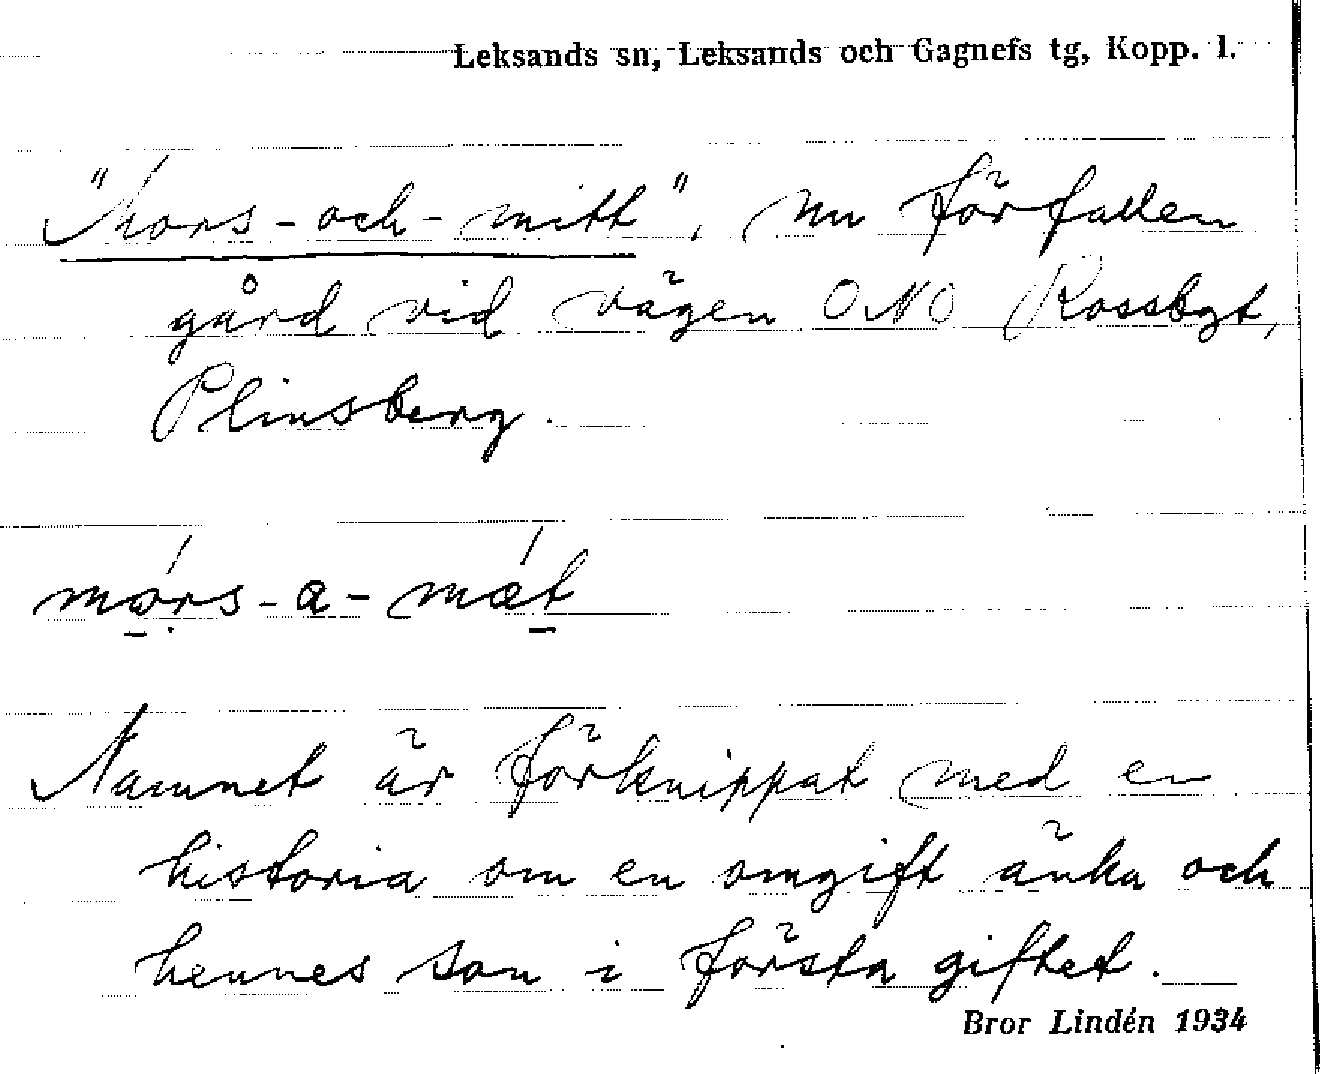 Leksands sn, Leksands och Gagnefs tg, Kopp. l.
"Mors-och-mitt", nu förfallen
gård vid vägen ONO Rossbgt,
Plinsberg.
mórs-a-mǽt
Namnet är förknippat med en
historia om en omgift änka och
hennes son i första giftet.
Bror Lindén 1934